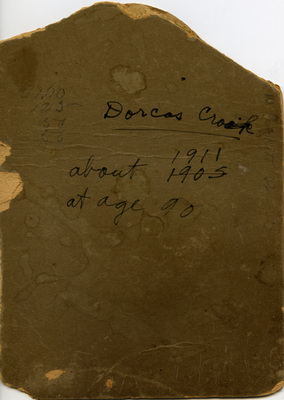 Dorcas Crook
1911
about 1905
at age 90